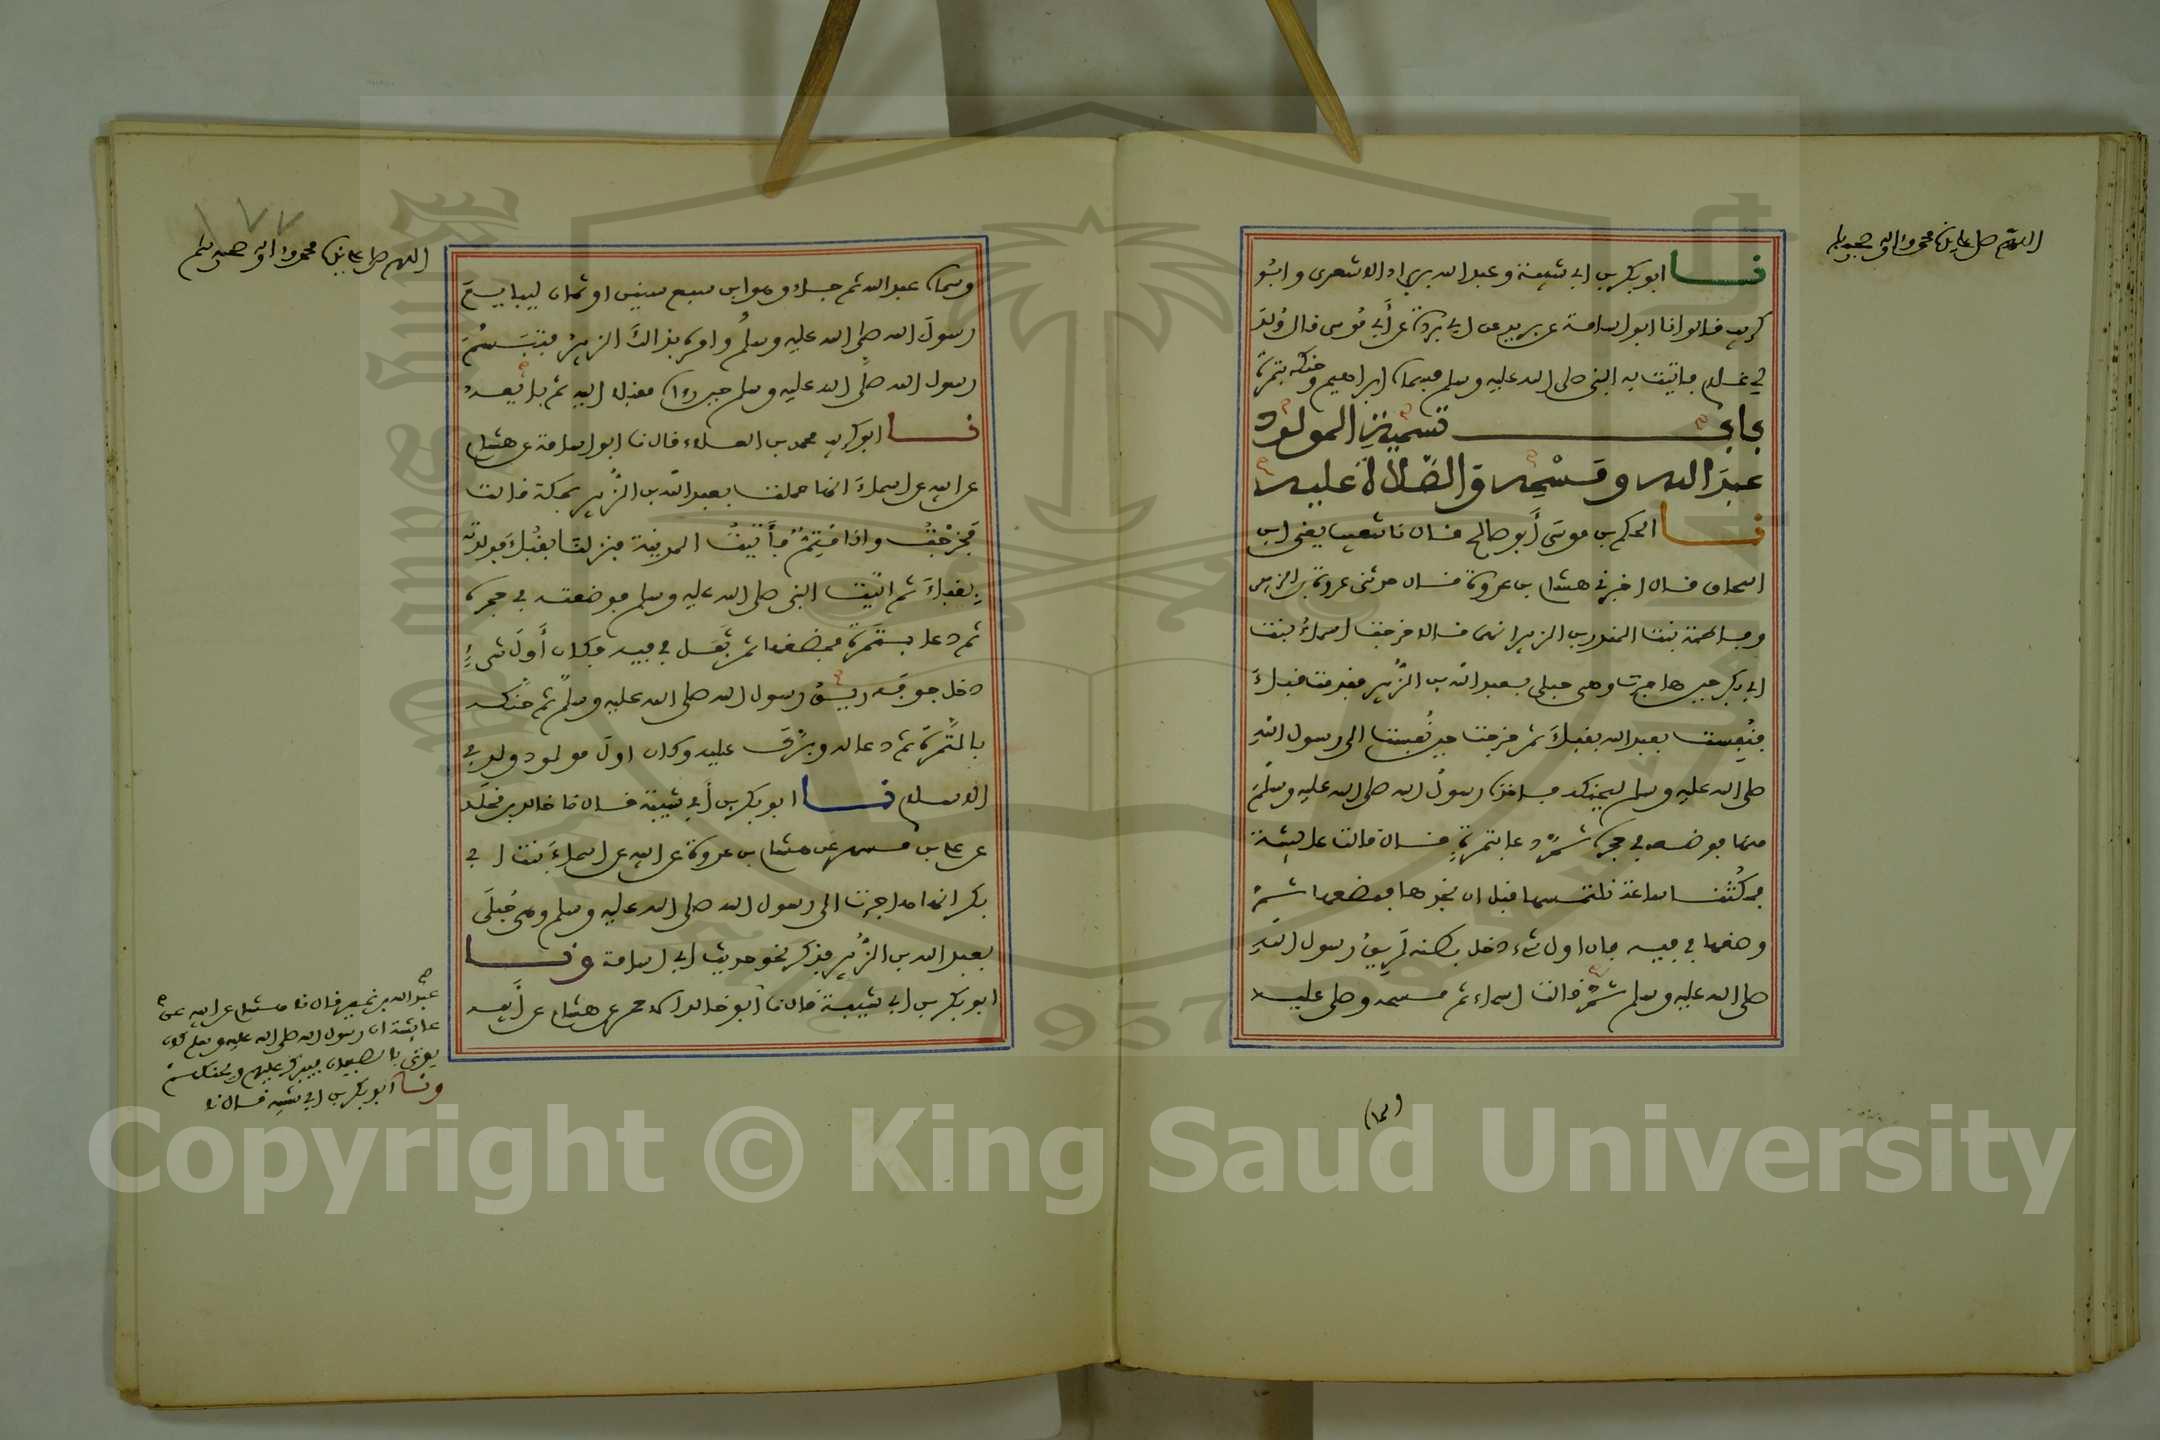 اللهم صل على سيدنا محمد وآله وصحبه وسلم
نا ابو بكر بن ابي شيبة وعبد الله بن براد الاشعري وابو
كريب قالوا نا ابو اسامة عن بريد عن ابي بردة عن أبي موسى قال وُلدَ
لي غلام فاتيت به النبي صلى الله عليه وسلم فسماه ابراهيم وحنكه بتمرة
باب تسمية المولود
عبد الله ومسحه والصلاة عليه
نا الحكم بن موسى أبو صالح قال نا شعيب يعني ابن
اسحاق قال اخبرني هشام بن عروة قال حدثني عروة بن الزبير
وفاطمة بنت المنذر بن الزبير انهما قالا خرجت اسماء بنت
ابي بكر حين هاجرت وهي حبلى بعبد الله بن الزبير فقدمت قباءَ
فنُفِست بعبد الله بقباءَ ثم خرجت حين نُفِست الى رسول الله
صلى الله عليه وسلم ليحنكه فاخذه رسول الله صلى الله عليه وسلم
منها فوضعه في حجره ثم دعا بتمرةٍ قال قالت عائشة
فمكثنا ساعة نلتمسها قبل ان نجدها فمضغها ثم
بصقها في فيه فان اول شيء دخل بطنه لَريقُ رسول الله
صلى الله عليه وسلم ثم قالت اسماء ثم مسحه وصلى عليه
(١٨)
١٧٧
اللهم صل على سيدنا محمد وآله وصحبه وسلم
وسماه عبد الله ثم جاء وهو ابن سبع سنين او ثمان ليبايع
رسولَ الله صلى الله عليه وسلم وامره بذالك الزبير فتبسم
رسول الله صلى الله عليه وسلم حين رءاه مقبلا اليه ثم بايعه
نا ابو كريب محمد بن العلاء قال نا ابو اسامة عن هشام
عن ابيه عن اسماءَ انها حملت بعبد الله بن الزُّبير بمكة قالت
فخرجْتُ وانا مُتِمٌّ فأتيتُ المدينة فنزلت بقُباءَ فولدته
بقباءَ ثم اتيت النبي صلى الله عليه وسلم فوضعته في حجره
ثم دعا بتمرةٍ فمضغها ثم تَفَل في فيه فكان أَولَ شيءٍ
دخل جوفَه ريقُ رسول الله صلى الله عليه وسلم ثم حنَّكه
بالتَّمرة ثم دعا له وبرَّك عليه وكان اولَ مولود ولد في
الاسلام نا ابو بكر بن أبي شيبة قال نا خالد بن مخلَد
عن علي بن مسهر عن هشام بن عروة عن ابيه عن اسماءَ بنت ابي
بكر انها هاجرت الى رسول الله صلى الله عليه وسلم وهي حُبلَى
بعبد الله بن الزُّبير فذكر نحو حديث ابي اسامة ونا
ابو بكر بن ابي شيبة قال نا أبو خالد الاحمر عن هشام عن أَبيه
عبد الله بن نمير قال نا هشام عن ابيه عن
عايشة ان رسول الله صلى الله عليه وسلم كان
يوتى بالصبيان فيبرك عليهم ويحنكهم
ونا ابو بكر بن ابي شيبة قال نا
Copyright © King Saud University
King Saud University
1957